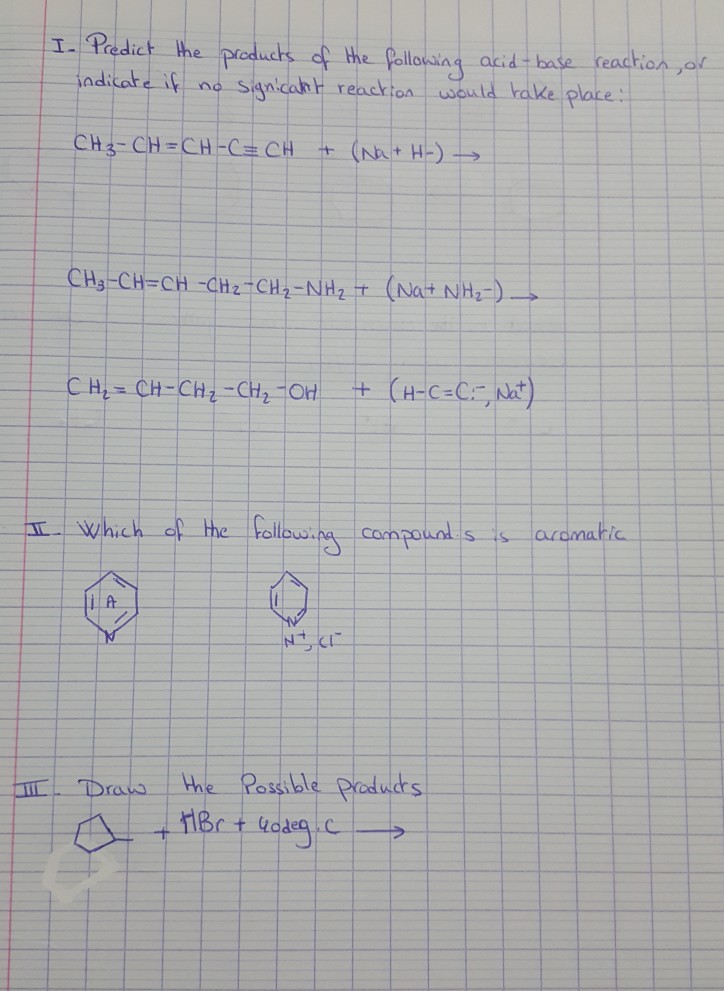 I- Predict the products of the following acid-base reaction, or
indicate if no signicant reaction would take place:
CH3-CH=CH-C≡CH + (Na+H-) →
CH₃-CH=CH-CH₂-CH₂-NH₂ + (Na+ NH₂-) →
CH₂=CH-CH₂-CH₂-OH + (H-C=C:⁻, Na⁺)
II- Which of the following compounds is aromatic
A
N N
N⁺, Cl⁻
III- Draw the Possible products
+ HBr + 40deg.C →